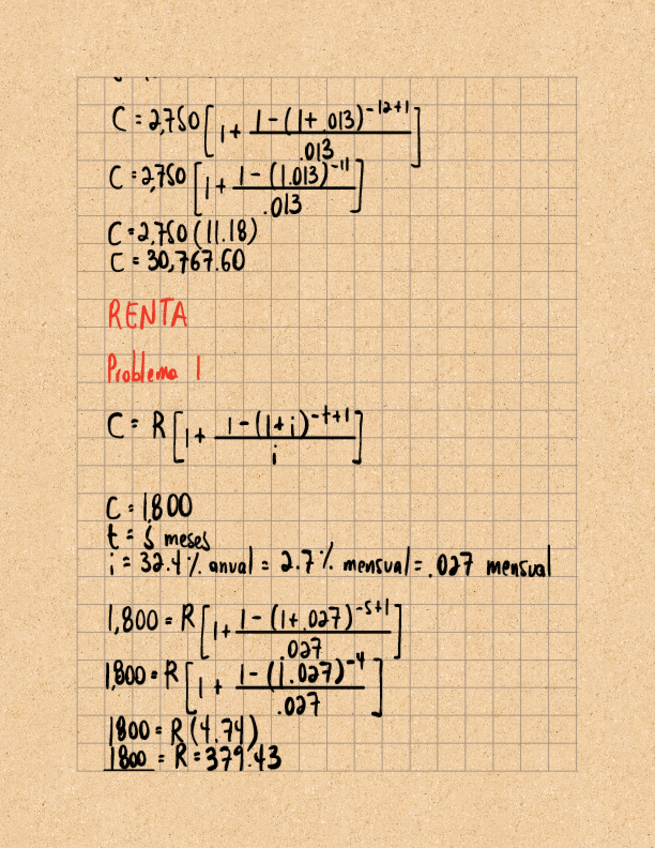 C = 2,750 [1 + 1 - (1 + .013)^-12+1 / .013]
C = 2,750 [1 + 1 - (1.013)^-11 / .013]
C = 2,750 (11.18)
C = 30,767.60
RENTA
Problema 1
C = R [1 + 1 - (1+i)^-t+1 / i]
C = 1,800
t = 5 meses
i = 32.4% anual = 2.7% mensual = .027 mensual
1,800 = R [1 + 1 - (1 + .027)^-5+1 / .027]
1,800 = R [1 + 1 - (1.027)^-4 / .027]
1800 = R (4.74)
1800 = R = 379.43